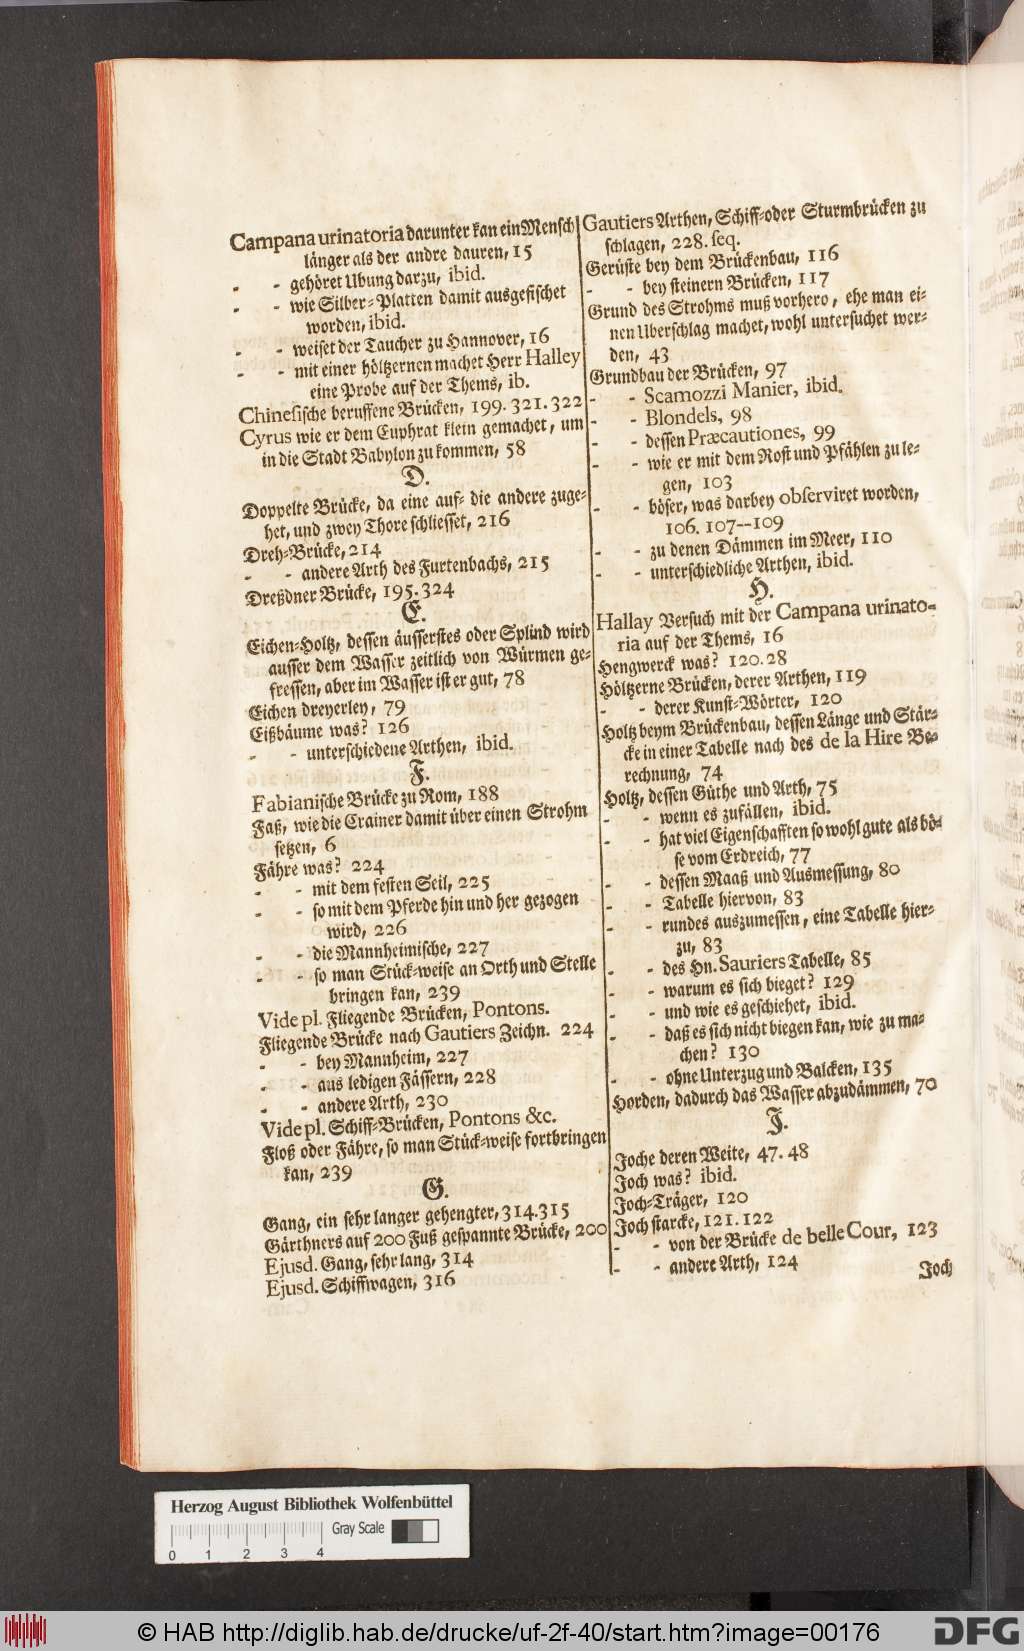 Campana urinatoria darunter kan ein Mensch
länger als der andre dauren, 15
- - gehöret Ubung darzu, ibid.
- - wie Silber-Platten damit ausgefischet
worden, ibid.
- - weiset der Taucher zu Hannover, 16
- - mit einer höltzernen machet Herr Halley
eine Probe auf der Thems, ib.
Chinesische beruffene Brücken, 199. 321. 322
Cyrus wie er dem Euphrat klein gemachet, um
in die Stadt Babylon zu kommen, 58
D.
Doppelte Brücke, da eine auf- die andere zuge-
het, und zwey Thore schliesset, 216
Dreh-Brücke, 214
- - andere Arth des Furtenbachs, 215
Dreßdner Brücke, 195. 324
E.
Eichen-Holtz, dessen äusserstes oder Splind wird
ausser dem Wasser zeitlich von Würmen ge-
fressen, aber im Wasser ist er gut, 78
Eichen dreyerley, 79
Eißbäume was? 126
- - unterschiedene Arthen, ibid.
F.
Fabianische Brücke zu Rom, 188
Faß, wie die Crainer damit über einen Strohm
setzen, 6
Fähre was? 224
- - mit dem festen Seil, 225
- - so mit dem Pferde hin und her gezogen
wird, 226
- - die Mannheimische, 227
- - so man Stück-weise an Orth und Stelle
bringen kan, 239
Vide pl. Fliegende Brücken, Pontons.
Fliegende Brücke nach Gautiers Zeichn. 224
- - bey Mannheim, 227
- - aus ledigen Fässern, 228
- - andere Arth, 230
Vide pl. Schiff-Brücken, Pontons &c.
Floß oder Fähre, so man Stück-weise fortbringen
kan, 239
G.
Gang, ein sehr langer gehengter, 314. 315
Gärthners auf 200 Fuß gespannte Brücke, 200
Ejusd. Gang, sehr lang, 314
Ejusd. Schiffwagen, 316
Gautiers Arthen, Schiff- oder Sturmbrücken zu
schlagen, 228. seq.
Gerüste bey dem Brückenbau, 116
- - bey steinern Brücken, 117
Grund des Strohms muß vorhero, ehe man ei-
nen Uberschlag machet, wohl untersuchet wer-
den, 43
Grundbau der Brücken, 97
- - Scamozzi Manier, ibid.
- - Blondels, 98
- - dessen Præcautiones, 99
- - wie er mit dem Rost und Pfählen zu le-
gen, 103
- - böser, was darbey observiret worden,
106. 107--109
- - zu denen Dämmen im Meer, 110
- - unterschiedliche Arthen, ibid.
H.
Hallay Versuch mit der Campana urinato-
ria auf der Thems, 16
Hengwerck was? 120. 28
Höltzerne Brücken, derer Arthen, 119
- - derer Kunst-Wörter, 120
Holtz beym Brückenbau, dessen Länge und Stär-
cke in einer Tabelle nach des de la Hire Be-
rechnung, 74
Holtz, dessen Güthe und Arth, 75
- - wenn es zufällen, ibid.
- - hat viel Eigenschafften so wohl gute als bö-
se vom Erdreich, 77
- - dessen Maaß und Ausmessung, 80
- - Tabelle hiervon, 83
- - rundes auszumessen, eine Tabelle hier-
zu, 83
- - des Hn. Sauriers Tabelle, 85
- - warum es sich bieget? 129
- - und wie es geschiehet, ibid.
- - daß es sich nicht biegen kan, wie zu ma-
chen? 130
- - ohne Unterzug und Balcken, 135
Horden, dadurch das Wasser abzudämmen, 70
J.
Joche deren Weite, 47. 48
Joch was? ibid.
Joch-Träger, 120
Joch starcke, 121. 122
- - von der Brücke de belle Cour, 123
- - andere Arth, 124
Joch
Herzog August Bibliothek Wolfenbüttel
Gray Scale
0 1 2 3 4
© HAB http://diglib.hab.de/drucke/uf-2f-40/start.htm?image=00176
DFG